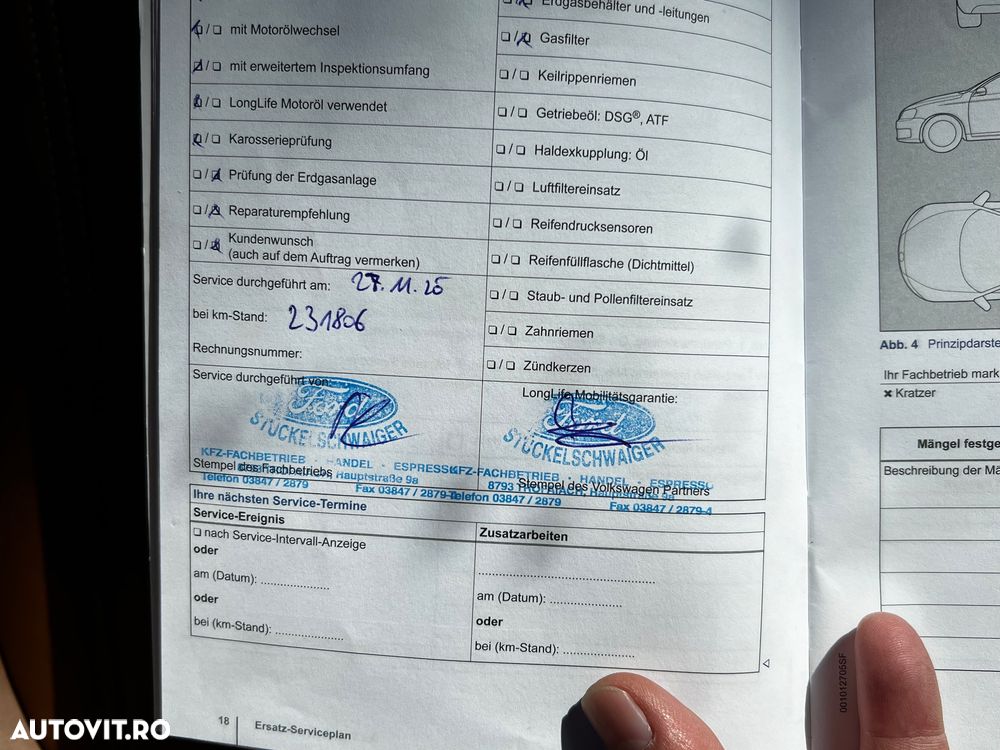 Erdgasbehälter und -leitungen
❏/❏ mit Motorölwechsel
❏/❏ Gasfilter
❏/❏ mit erweitertem Inspektionsumfang
❏/❏ Keilrippenriemen
❏/❏ LongLife Motoröl verwendet
❏/❏ Getriebeöl: DSG®, ATF
❏/❏ Karosserieprüfung
❏/❏ Haldexkupplung: Öl
❏/❏ Prüfung der Erdgasanlage
❏/❏ Luftfiltereinsatz
❏/❏ Reparaturempfehlung
❏/❏ Reifendrucksensoren
❏/❏ Kundenwunsch
(auch auf dem Auftrag vermerken)
❏/❏ Reifenfüllflasche (Dichtmittel)
Service durchgeführt am: 27.11.25
❏/❏ Staub- und Pollenfiltereinsatz
bei km-Stand: 231806
❏/❏ Zahnriemen
Rechnungsnummer:
❏/❏ Zündkerzen
Service durchgeführt von:
Ford
STÜCKELSCHWAIGER
KFZ-FACHBETRIEB - HANDEL - ESPRESSO
Hauptstraße 9a
Telefon 03847 / 2879 Fax 03847 / 2879-4
Stempel des Fachbetriebs
LongLife Mobilitätsgarantie:
Ford
STÜCKELSCHWAIGER
KFZ-FACHBETRIEB - HANDEL - ESPRESSO
8793 TROFAIACH, Hauptstraße 9a
Telefon 03847 / 2879 Fax 03847 / 2879-4
Stempel des Volkswagen Partners
Ihre nächsten Service-Termine
Service-Ereignis
Zusatzarbeiten
❏ nach Service-Intervall-Anzeige
oder
am (Datum): ....................
oder
bei (km-Stand): ....................
..................................................
am (Datum): ....................
oder
bei (km-Stand): ....................
18 Ersatz-Serviceplan
Abb. 4 Prinzipdarste
Ihr Fachbetrieb mark
✖ Kratzer
Mängel festge
Beschreibung der Mä
001012705SF
AUTOVIT.RO